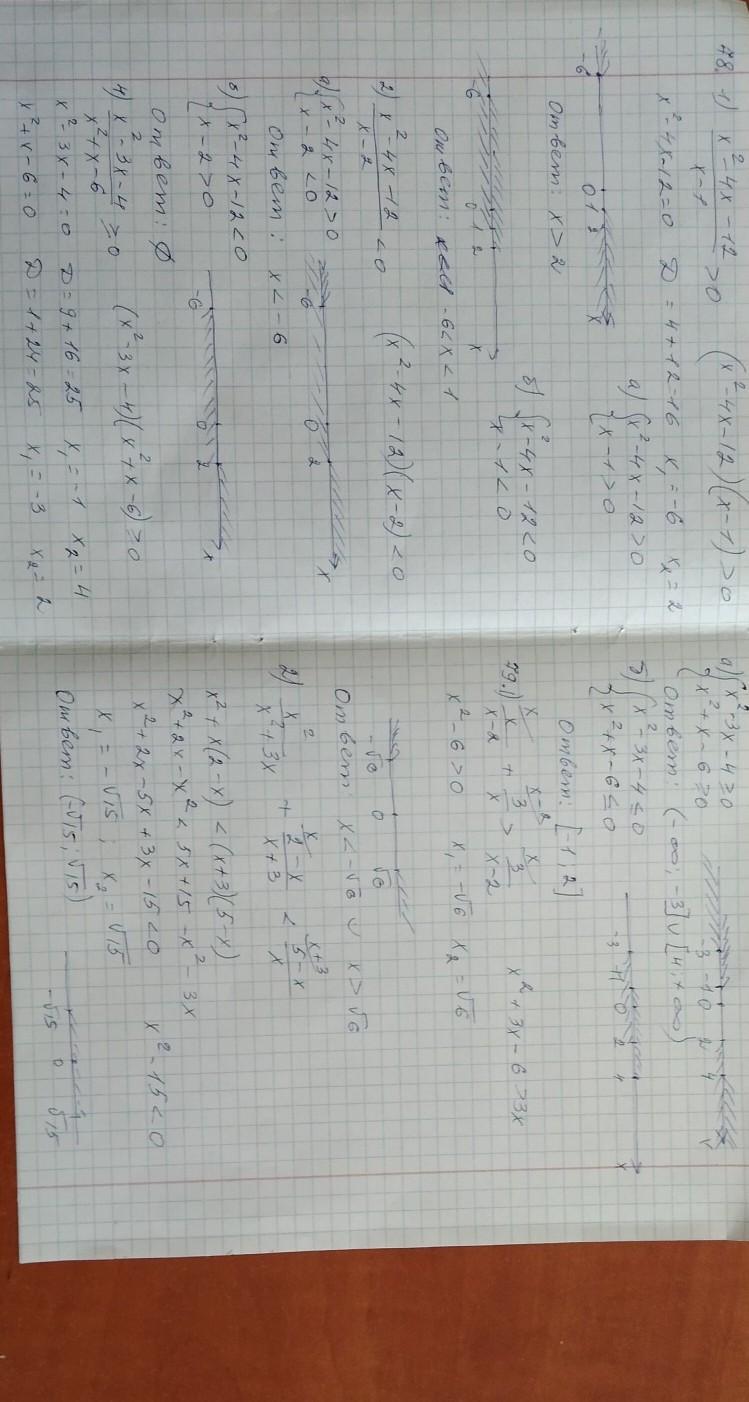 78. 1) (x² - 4x - 12)/(x - 1) > 0 (x² - 4x - 12)(x - 1) > 0
x² - 4x - 12 = 0 D = 4 + 12 = 16 x₁ = -6 x₂ = 2
а) { x² - 4x - 12 > 0
x - 1 > 0
-6 0 1 2 x
Ответ: x > 2
б) { x² - 4x - 12 < 0
x - 1 < 0
-6 0 1 2 x
Ответ: -6 < x < 1
2) (x² - 4x - 12)/(x - 2) < 0 (x² - 4x - 12)(x - 2) < 0
а) { x² - 4x - 12 > 0
x - 2 < 0
-6 0 2 x
Ответ: x < -6
б) { x² - 4x - 12 < 0
x - 2 > 0
-6 0 2 x
Ответ: ∅
4) (x² - 3x - 4)/(x² + x - 6) ≥ 0 (x² - 3x - 4)(x² + x - 6) ≥ 0
x² - 3x - 4 = 0 D = 9 + 16 = 25 x₁ = -1 x₂ = 4
x² + x - 6 = 0 D = 1 + 24 = 25 x₁ = -3 x₂ = 2
а) { x² - 3x - 4 ≥ 0
x² + x - 6 ≥ 0
-3 -1 0 2 4
Ответ: (-∞; -3] ∪ [4; +∞)
б) { x² - 3x - 4 ≤ 0
x² + x - 6 ≤ 0
-3 -1 0 2 4 x
Ответ: [-1, 2]
79. 1) x/(x - 2) + 3/x > 3/(x - 2) x² + 3x - 6 > 3x
x² - 6 > 0 x₁ = -√6 x₂ = √6
-√6 0 √6
Ответ: x < -√6 ∪ x > √6
2) x²/(x² + 3x) + (2 - x)/(x + 3) < (5 - x)/x
x² + x(2 - x) < (x + 3)(5 - x)
x² + 2x - x² < 5x + 15 - x² - 3x
x² + 2x - 5x + 3x - 15 < 0 x² - 15 < 0
x₁ = -√15; x₂ = √15
-√15 0 √15
Ответ: (-√15; √15)